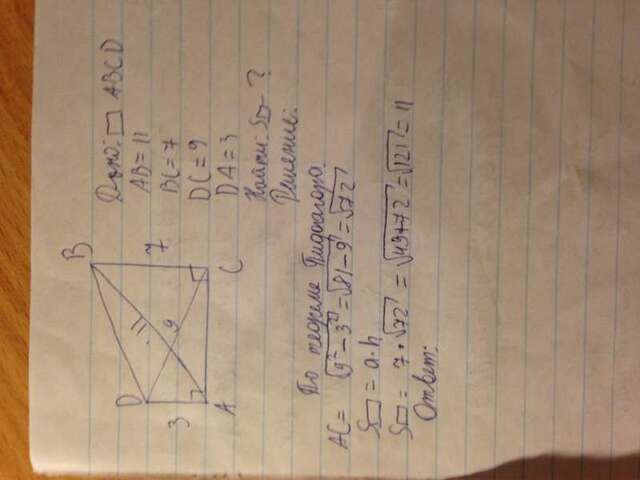 B
D 7
11
9
3
A C
Дано: □ ABCD
AB = 11
BC = 7
DC = 9
DA = 3
Найти: S□ - ?
Решение:
По теореме Пифагора
AC = √9²-3² = √81-9 = √72
S□ = a·h
S□ = 7·√72 = √49+72 = √121 = 11
Ответ: